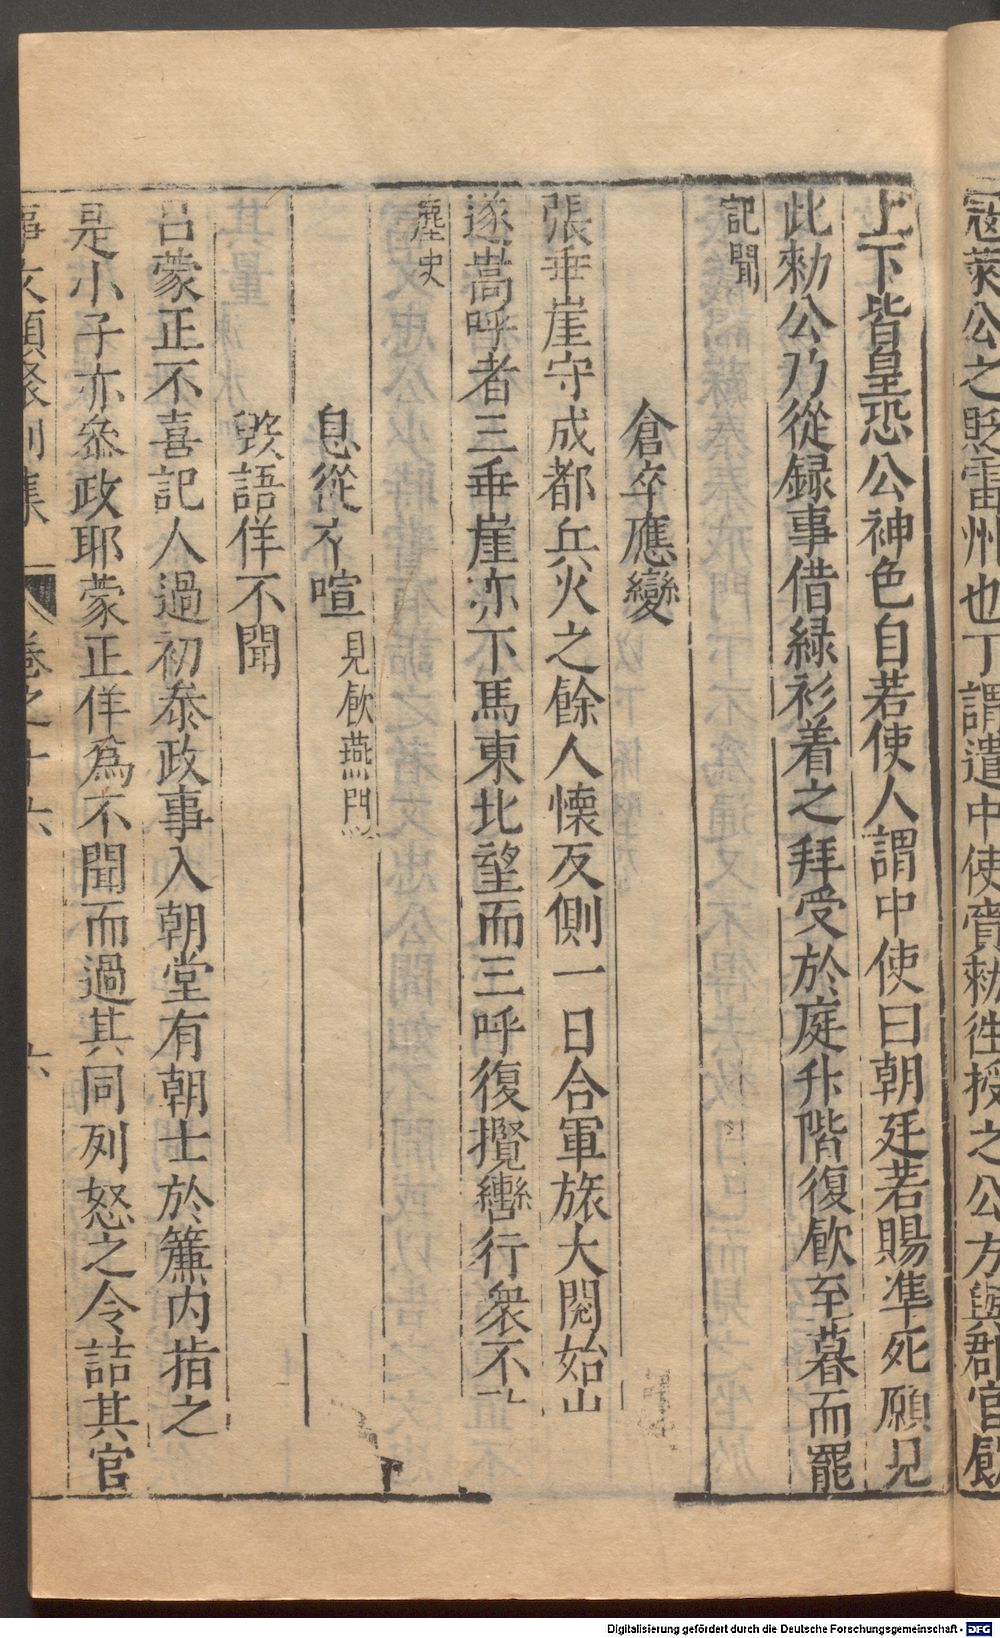 冦萊公之貶雷州也丁謂遣中使賫勑徃授之公方與郡官飮
上下皆皇恐公神色自若使人謂中使曰朝廷若賜凖死願見
此勑公乃從録事借緑衫着之拜受於庭升階復飮至暮而罷
記聞
倉卒應變
張垂崖守成都兵火之餘人懐反側一日合軍旅大閱始出
遂嵩呼者三垂崖亦下馬東北望而三呼復攬轡行衆不
麈史
息從不喧 見飮燕門
毀語佯不聞
吕蒙正不喜記人過初叅政事入朝堂有朝士於簾内指之
是小子亦叅政耶蒙正佯爲不聞而過其同列怒之令詰其官
事文類聚別集 卷之十六 六
Digitalisierung gefördert durch die Deutsche Forschungsgemeinschaft - DFG